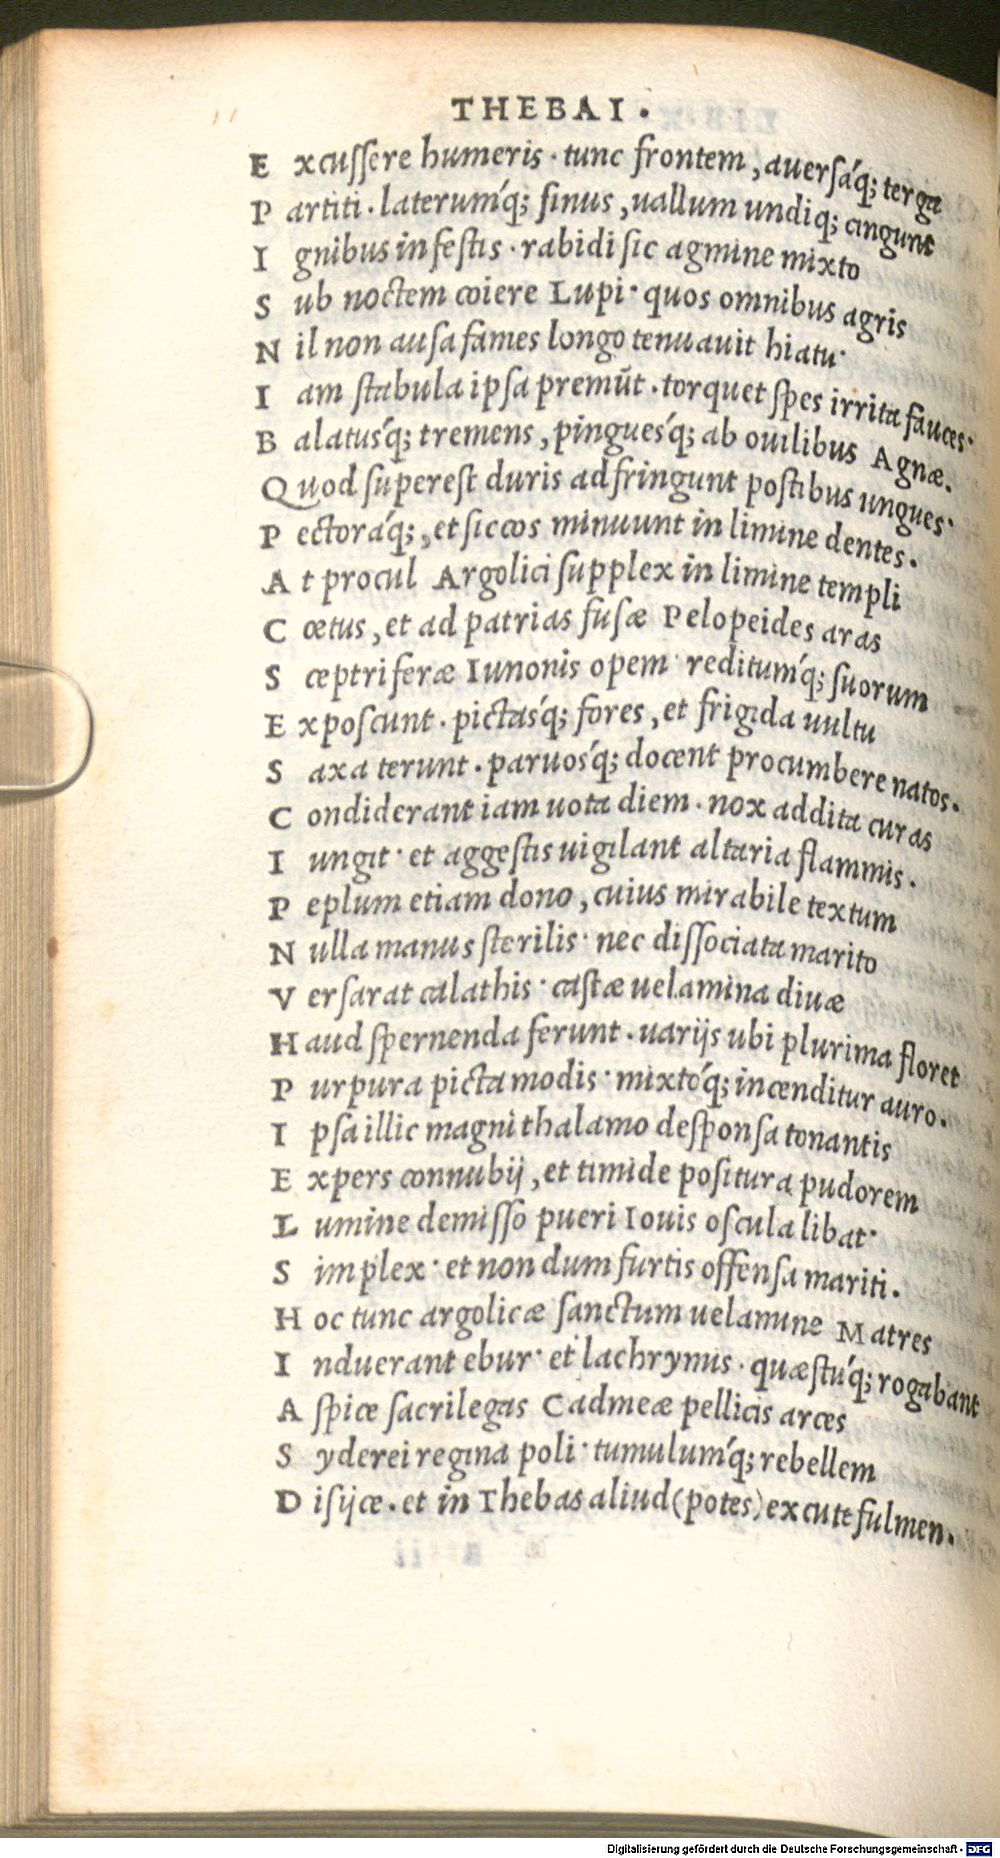 THEBAI.
E xcussere humeris. tunc frontem, auersáq; terga
P artiti. laterumq́; sinus, uallum undiq; cingunt
I gnibus infestis. rabidi sic agmine mixto
S ub noctem coiere Lupi. quos omnibus agris
N il non ausa fames longo tenuauit hiatu.
I am stabula ipsa premūt. torquet spes irrita fauces.
B alatusq́; tremens, pinguesq́; ab ouilibus Agnæ.
Quod superest duris adfringunt postibus ungues.
P ectoraq́;, et siccos minuunt in limine dentes.
A t procul Argolici supplex in limine templi
C œtus, et ad patrias fusæ Pelopeides aras
S ceptriferæ Iunonis opem. reditumq́; suorum
E xposcunt. pictasq́; fores, et frigida uultu
S axa terunt. paruosq́; docent procumbere natos.
C ondiderant iam uota diem. nox addita curas
I ungit. et aggestis uigilant altaria flammis.
P eplum etiam dono, cuius mirabile textum
N ulla manus sterilis. nec dissociata marito
V ersarat calathis. castæ uelamina diuæ
H aud spernenda ferunt. uarijs ubi plurima floret
P urpura picta modis. mixtoq́; incenditur auro.
I psa illic magni thalamo desponsa tonantis
E xpers connubij, et timide positura pudorem
L umine demisso pueri Iouis oscula libat.
S implex. et non dum furtis offensa mariti.
H oc tunc argolicæ sanctum uelamine Matres
I nduerant ebur. et lachrymis. quæstuq́; rogabant
A spice sacrilegas Cadmeæ pellicis arces
S yderei regina poli. tumulumq́; rebellem
D isijce. et in Thebas aliud (potes) excute fulmen.
Digitalisierung gefördert durch die Deutsche Forschungsgemeinschaft - DFG